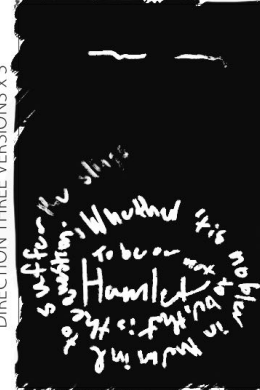 DIRECTION THREE VERSIONS X 3
Hamlet
To be or not to be, that is the question; Whether 'tis nobler in the mind to suffer the slings